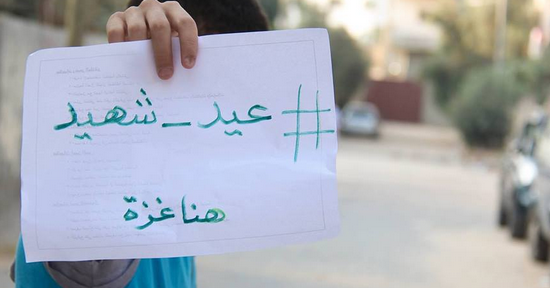 #عيد_شهيد
هنا غزة